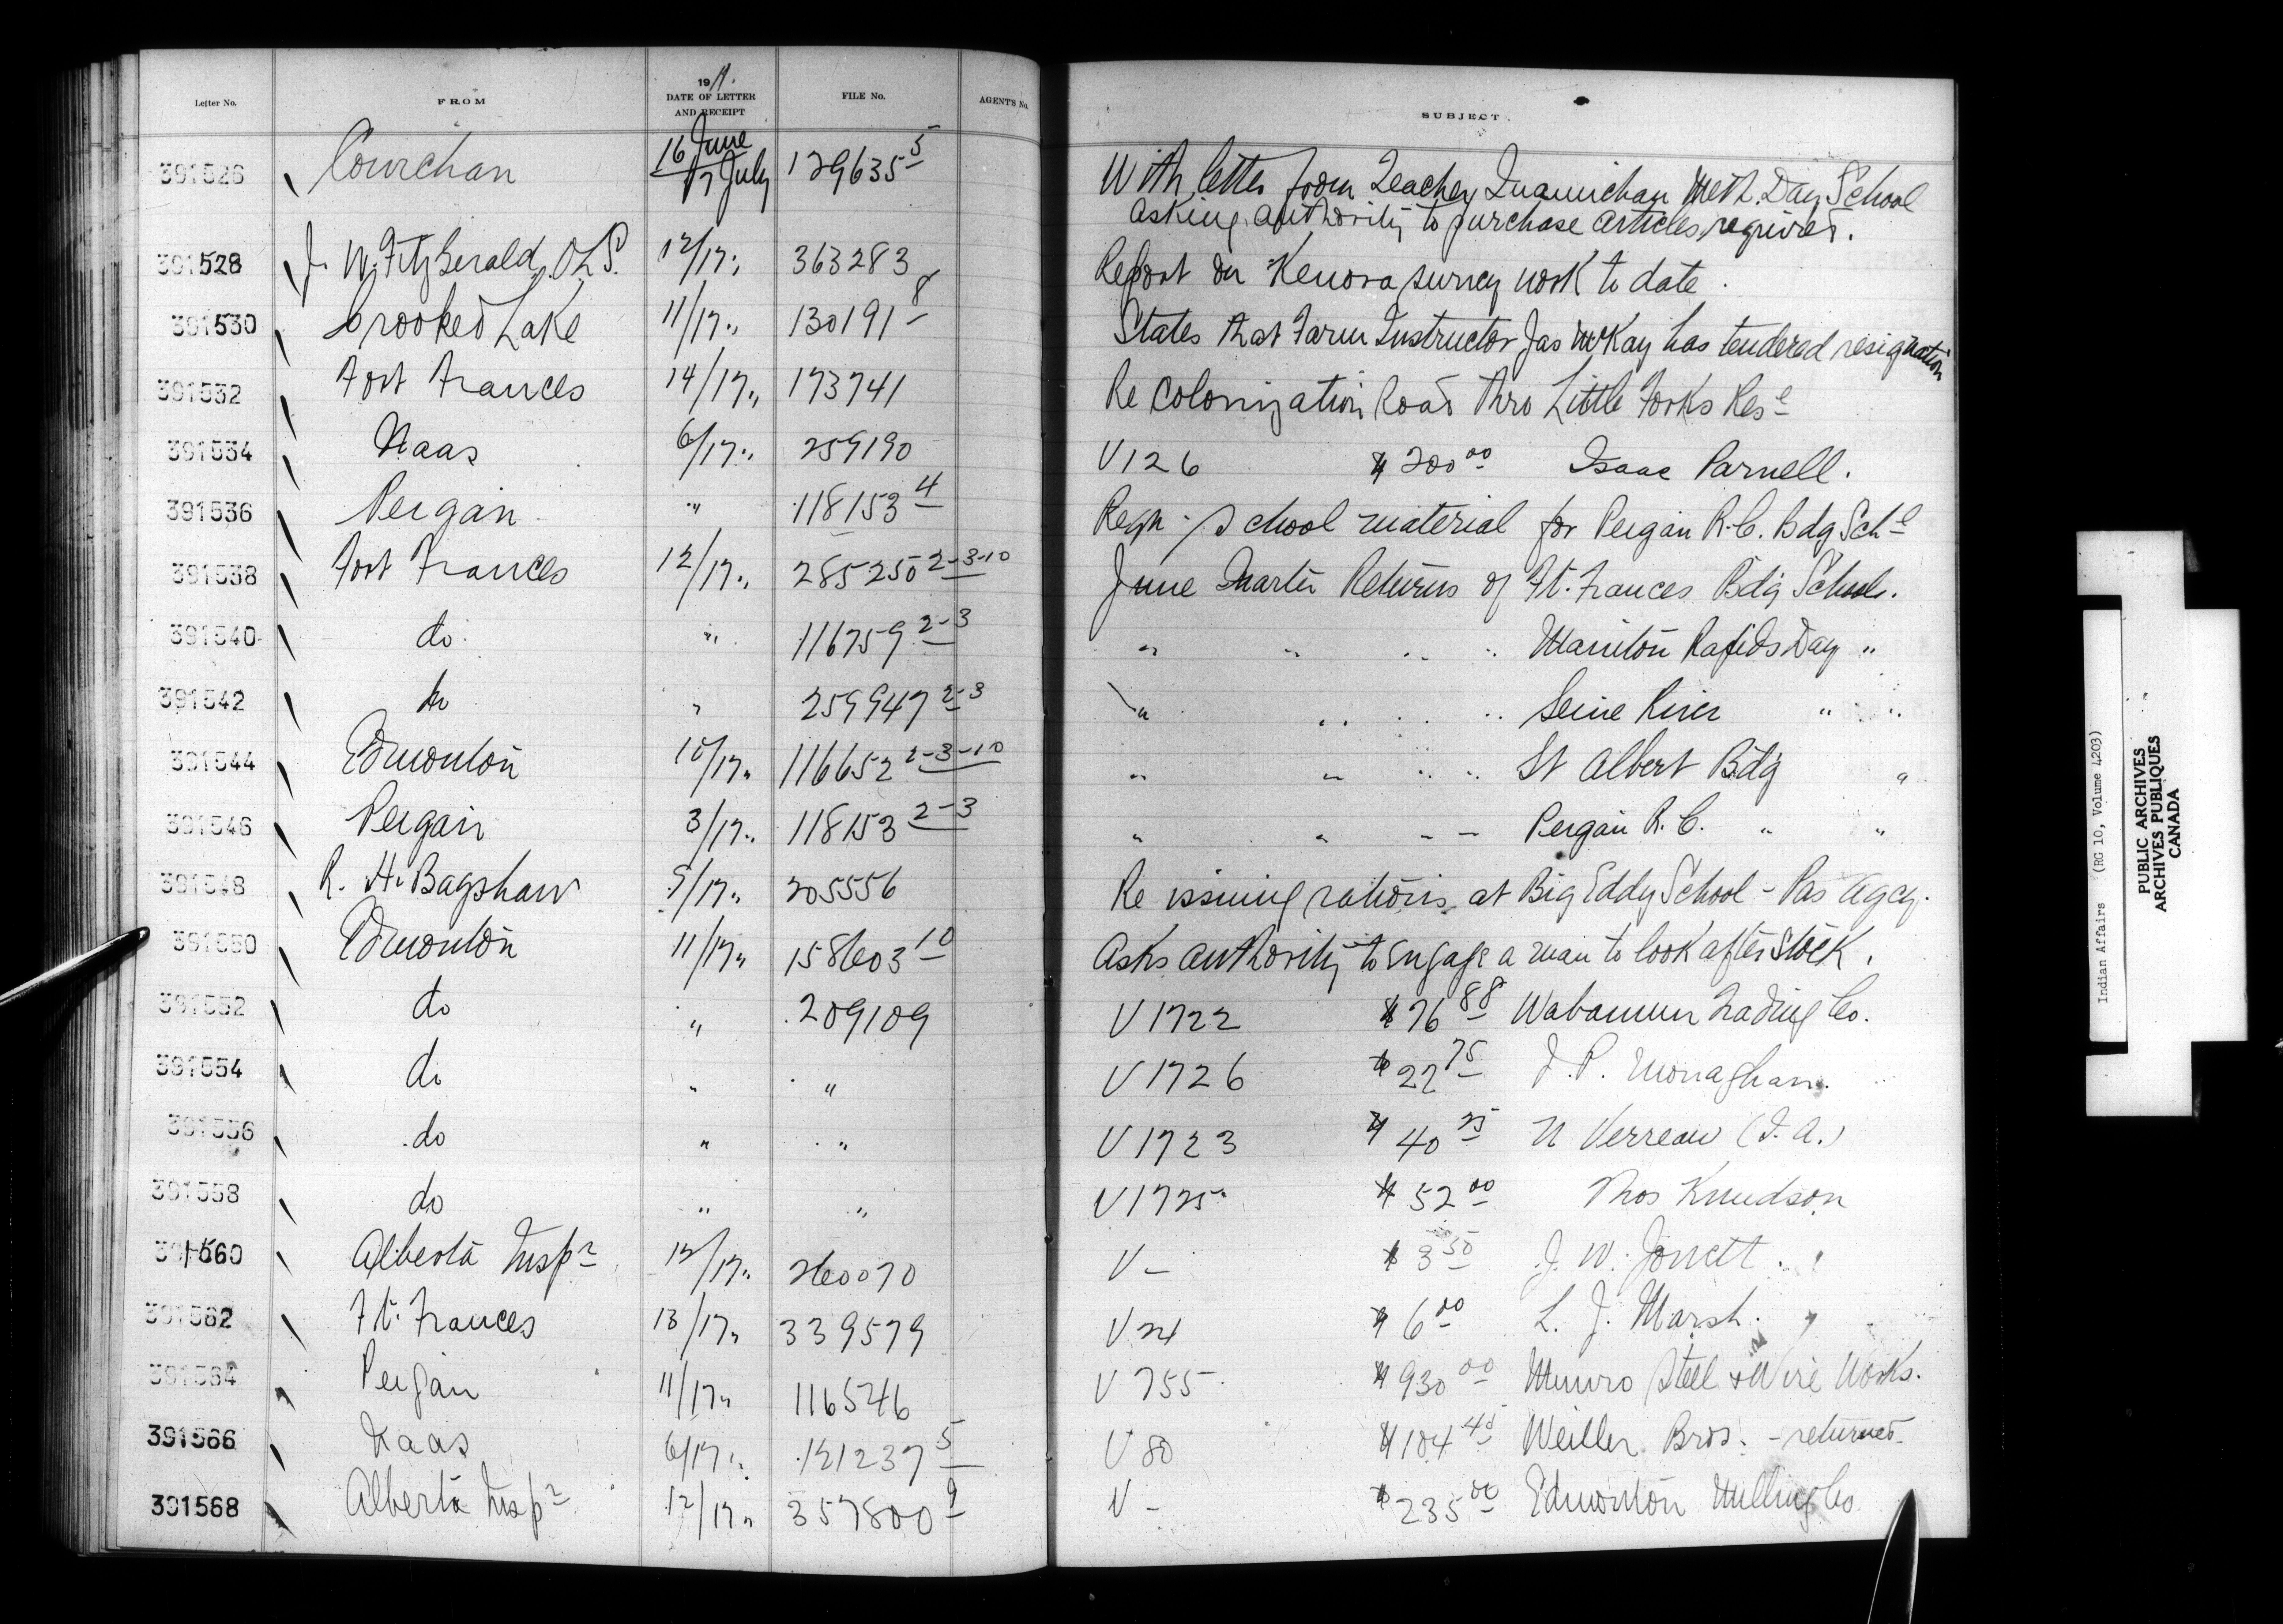 Letter No. FROM 1911. DATE OF LETTER AND RECEIPT FILE No. AGENT'S No. SUBJECT
391526 Cowichan 16 June / 17 July 129635-5 With letter from Teacher, Quamichan Meth. Day School
asking authority to purchase articles required.
391528 J. W. FitzGerald, O.L.S. 12/17 " 363283 Report on Kenora survey work to date.
391530 Crooked Lake 11/17 " 130191-8 States that Farm Instructor Jas McKay has tendered resignation
391532 Fort Frances 14/17 " 173741 Re Colonization Road thro Little Forks Rese
391534 Naas 6/17 " 259190 V 126 $200.00 Isaac Parnell.
391536 Peigan " 118153-4 Reqn. school material for Peigan R.C. Bdg Schl
391538 Fort Frances 12/17 " 285250 2-3-10 June Quarter Returns of Ft. Frances Bdg School.
391540 do " 116759 2-3 " " " " Manitou Rapids Day "
391542 do " 259947 2-3 " " " " Seine River " "
391544 Edmonton 10/17 " 116652 2-3-10 " " " " St Albert Bdg "
391546 Peigan 3/17 " 118153 2-3 " " " " Peigan R.C. " "
391548 R. H. Bagshaw 5/17 " 205556 Re issuing rations at Big Eddy School - Pas Agcy.
391550 Edmonton 11/17 " 158603-10 Asks authority to engage a man to look after stock.
391552 do " 209109 V 1722 $76.88 Wabamun Trading Co.
391554 do " " V 1726 $22.75 J. P. Monaghan.
391556 do " " V 1723 $40.25 N Verreau (I.A.)
391558 do " " V 1725 $52.00 Thos Knudson
391560 Alberta Inspr 12/17 " 260070 V - $3.50 J. W. Jowett.
391562 Ft. Frances 13/17 " 339579 V 24 $6.00 L. J. Marsh.
391564 Peigan 11/17 " 116546 V 755 $930.00 Munro Steel & Wire Works.
391566 Naas 6/17 " 121237-5 V 80 $104.45 Weiller Bros. - returned.
391568 Alberta Inspr 12/17 " 357800-9 V - $235.00 Edmonton Milling Co.
Indian Affairs (RG 10, Volume 4203)
PUBLIC ARCHIVES
ARCHIVES PUBLIQUES
CANADA